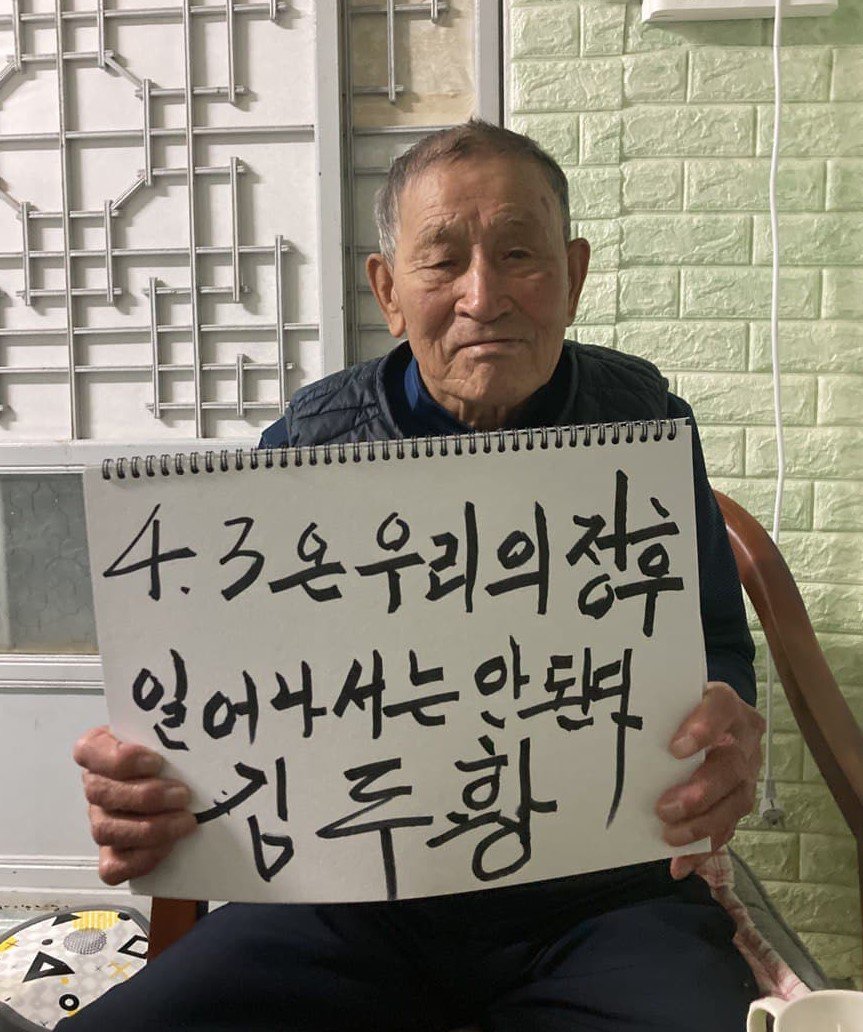 4.3은 우리의 정후
일어나서는 안된다
김두황